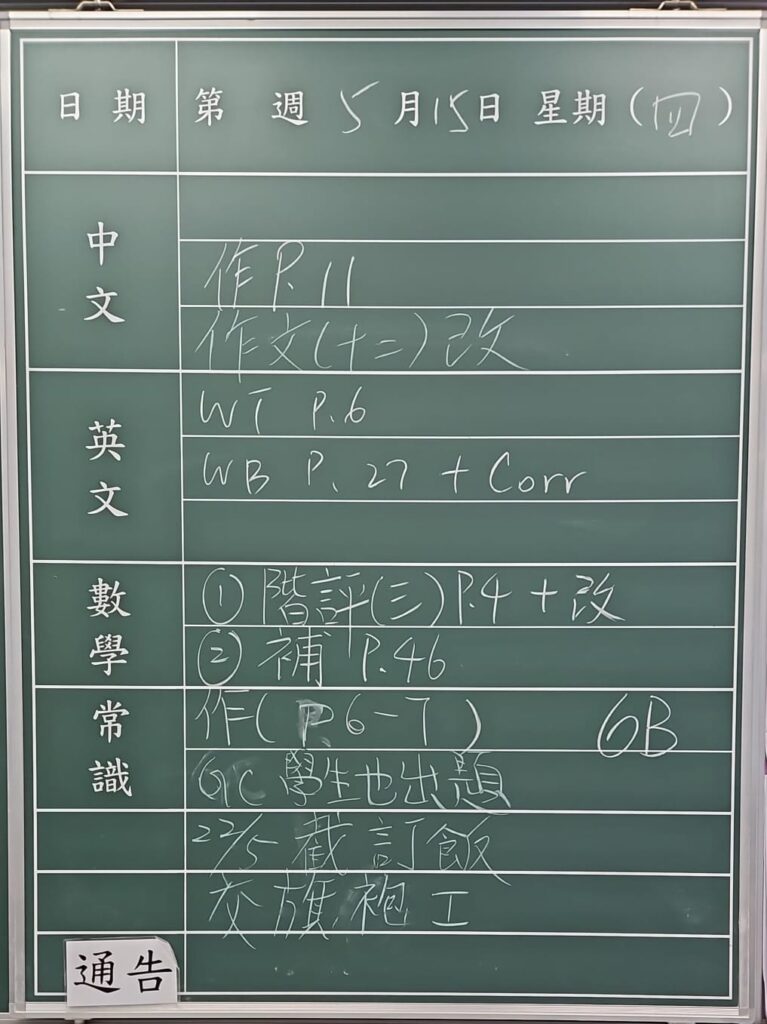 日期 第 週 5月15日 星期(四)
中文
作 P.11
作文(十二)改
英文
WT P.6
WB P.27 + Corr
數學
① 階評(三)P.4 + 改
② 補 P.46
常識
作( P.6-7 ) 6B
GC 學生也出題
22/5 截訂飯
交旗袍工
通告